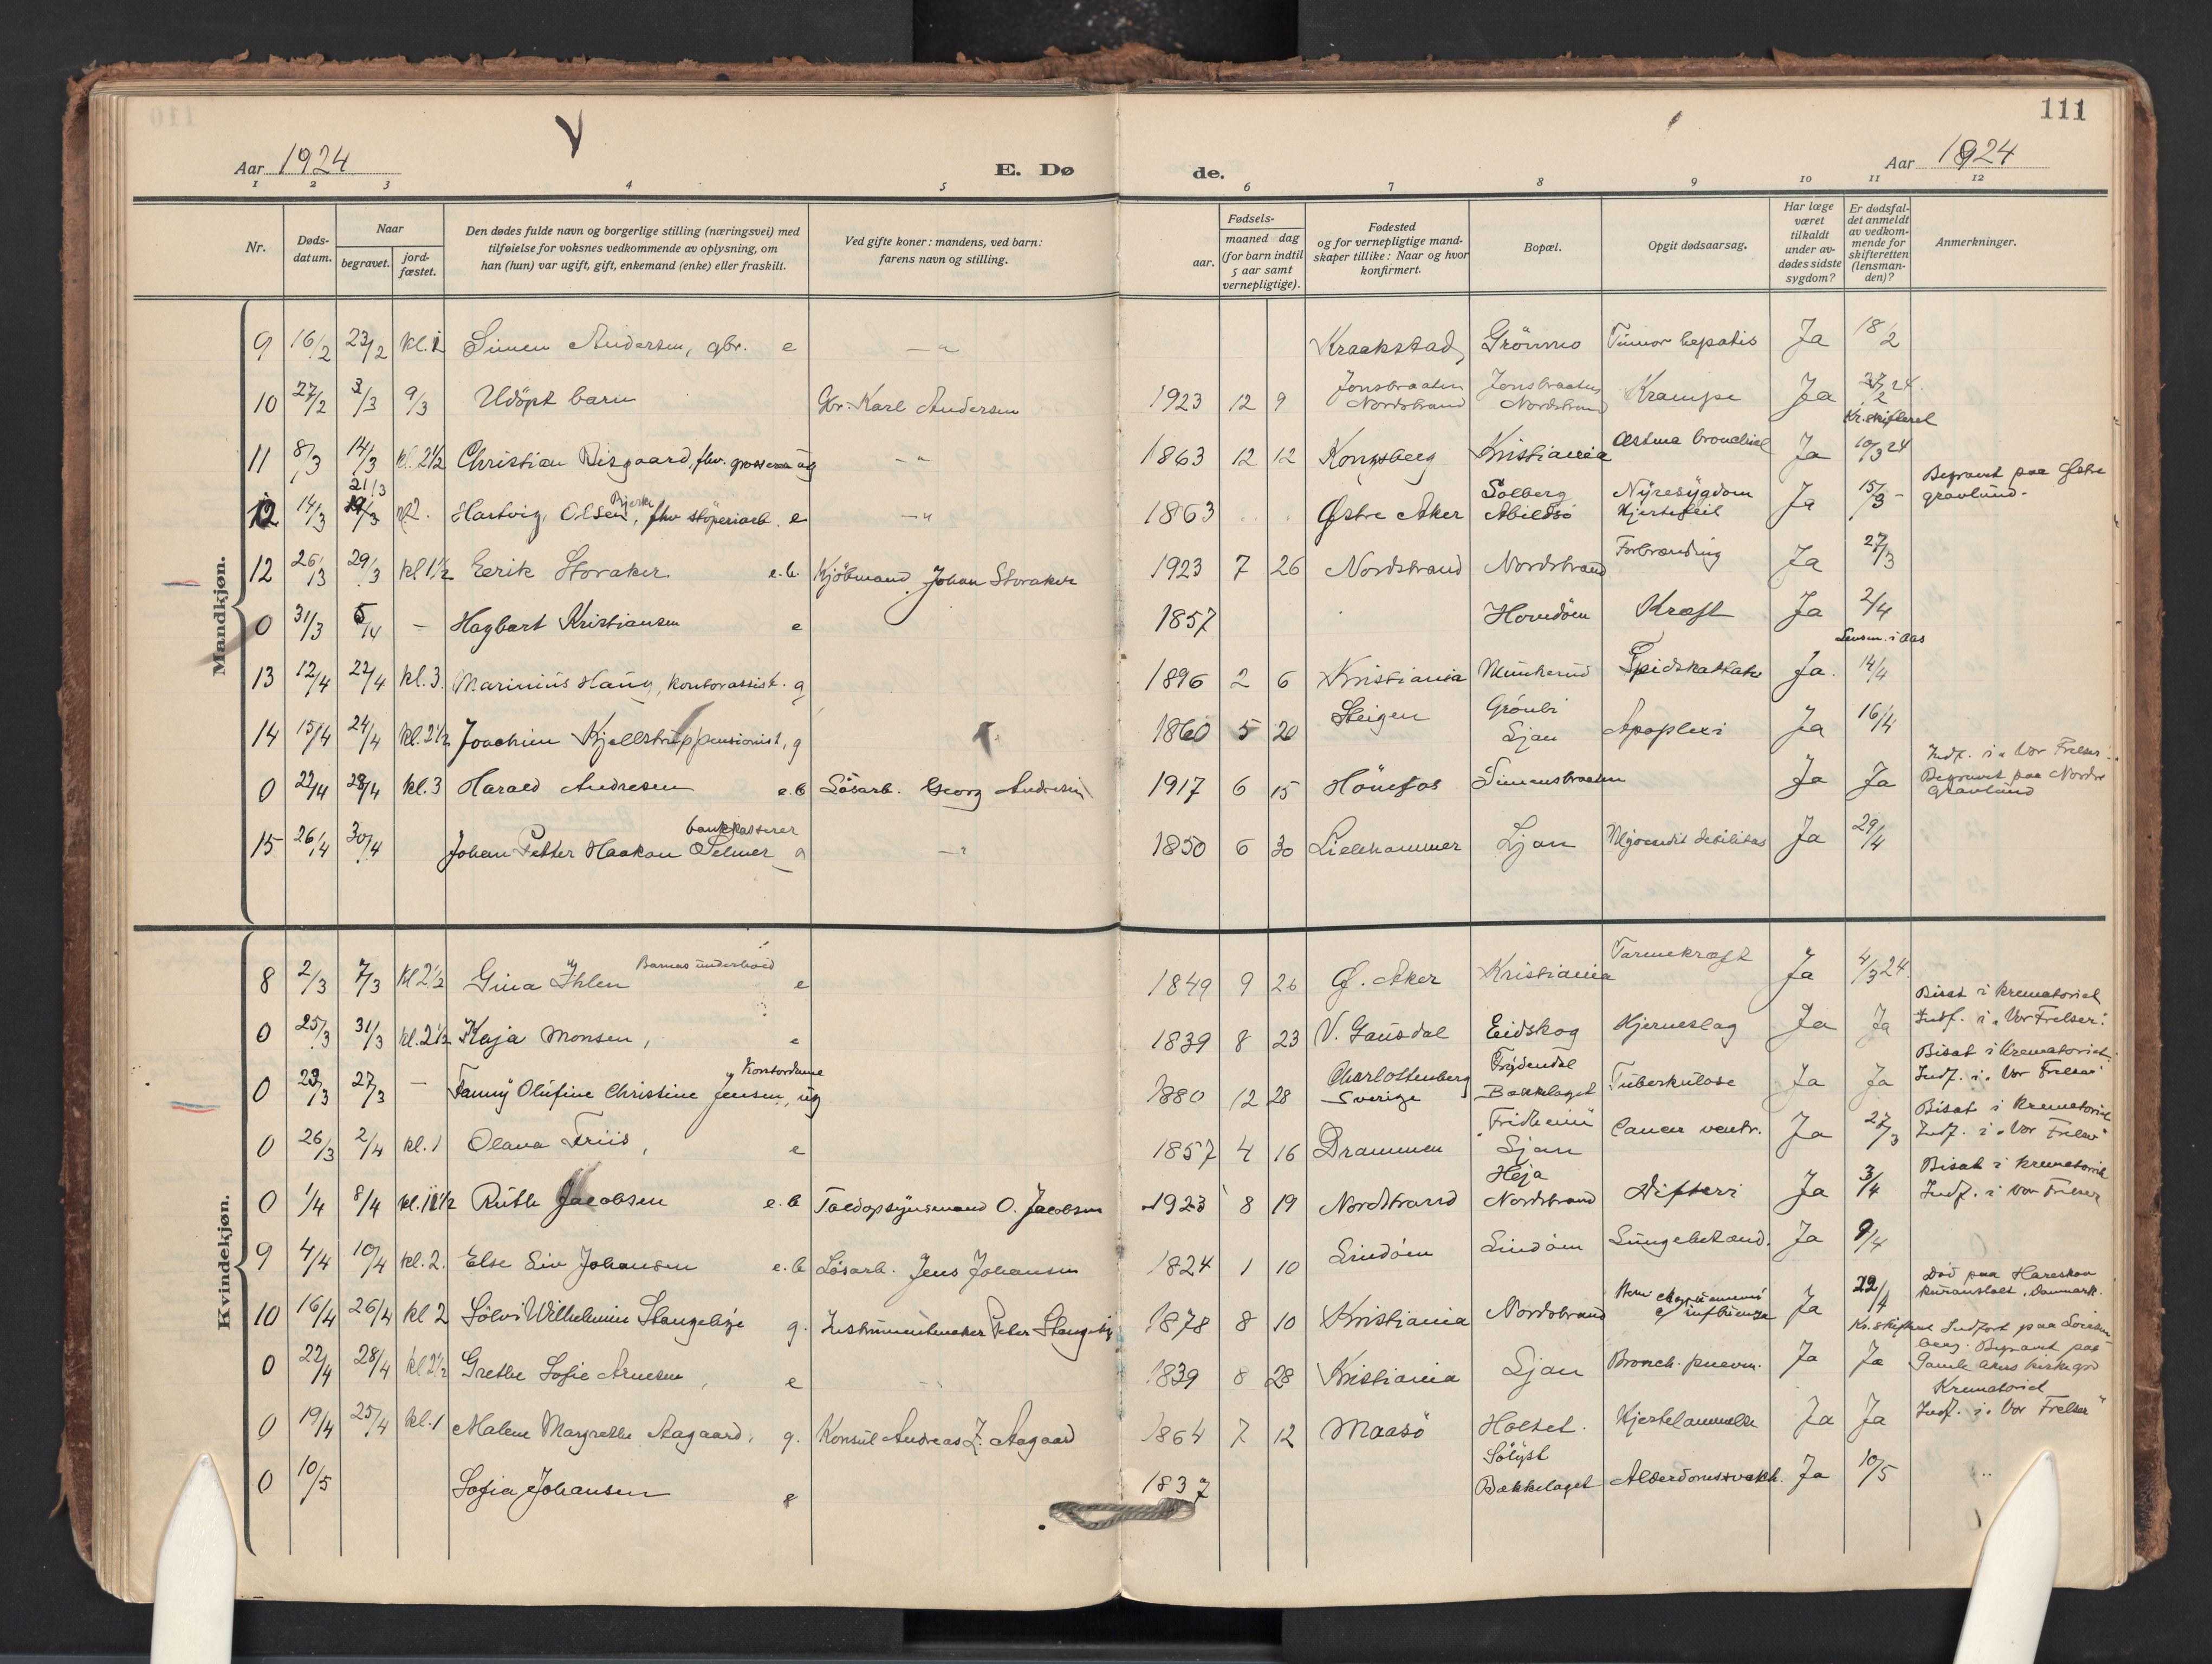 111
Aar 1924
E. Døde.
Aar 1924
1 2 3 4 5 6 7 8 9 10 11 12
Nr.
Døds-datum.
Naar
begravet.
jord-fæstet.
Den dødes fulde navn og borgerlige stilling (næringsvei) med
tilføielse for voksnes vedkommende av oplysning, om
han (hun) var ugift, gift, enkemand (enke) eller fraskilt.
Ved gifte koner: mandens, ved barn:
farens navn og stilling.
Fødsels-
aar.
maaned dag
(for barn indtil
5 aar samt
vernepligtige).
Fødested
og for vernepligtige mand-
skaper tillike: Naar og hvor
konfirmert.
Bopæl.
Opgit dødsaarsag.
Har læge
været
tilkaldt
under av-
dødes sidste
sygdom?
Er dødsfal-
det anmeldt
av vedkom-
mende for
skifteretten
(lensman-
den)?
Anmerkninger.
Mandkjøn.
9 16/2 23/2 kl. 1 Simen Andersen, gbr. e — " Kraakstad Grönmo Tumor hepatis Ja 18/2
10 27/2 3/3 9/3 Udöpt barn Gbr. Karl Andersen 1923 12 9 Jonsbraaten Nordstrand Jonsbraaten Nordstrand Krampe Ja 27/2 24.
Kr. skifteret
11 8/3 14/3 kl. 2½ Christian Risgaard, fhv. grosserer ug — " 1863 12 12 Kongsberg Kristiania Astma bronchial Ja 10/3 24
12 14/3 21/3 Hartvig Olsen Bjerke, fhv støperiarb. e — " 1863 Østre Aker Solberg Abildsö Nyresygdom Hjertefeil Ja 15/3 Begravet paa Østre gravlund.
12 26/3 29/3 kl 1½ Eerik Storaker e.b. Kjöbmand Johan Storaker 1923 7 26 Nordstrand Nordstrand Forbrænding Ja 27/3
0 31/3 5/4 — Hagbart Kristiansen e 1857 Kræft Ja 2/4
Lensm. i Aas
13 12/4 22/4 kl. 3. Marinius Haug, kontorassist. g 1896 2 6 Kristiania Munkerud Ja. 14/4
14 15/4 24/4 kl. 2½ Joachim Kjellstrup pensionist, g 1860 5 20 Steigen Grönli Ljan Apoplexi Ja 16/4
0 22/4 28/4 kl. 3 Harald Andresen e.b Lösarb. Georg Andresen 1917 6 15 Hönefos Simensbraaten Ja Ja Indf. i "Vor Frelser". Begravet paa Nordre Gravlund
15 26/4 30/4 Johan Petter Haakon Selmer bankkasserer g — " 1850 6 30 Lillehammer Ljan Ja 29/4
Kvindekjøn.
8 2/3 7/3 kl 2½ Gina Ihlen Barnas underhold e 1849 9 26 Ø. Aker Kristiania Tarmekræft Ja 4/3 24.
0 25/3 31/3 kl. 2½ Kaja Monsen, e 1839 8 23 V. Gausdal Eidskog Hjerneslag Ja Ja Bisat i Krematoriet Indf. i "Vor Frelser".
0 23/3 27/3 — Fanny Olufine Christine Jensen, Kontordame ug 1880 12 28 Charlottenberg Sverige Frydendal Bækkelaget Tuberkulose Ja Ja Bisat i Krematoriet. Indf. i "Vor Frelser"
0 26/3 2/4 kl. 1 Olava Friis, e 1857 4 16 Drammen "Fridheim" Ljan Cancer ventr. Ja 27/3 Bisat i Krematoriet Indf. i "Vor Frelser"
0 1/4 8/4 kl. 11½ Ruth Jacobsen e.b Toldopsynsmand O. Jacobsen 1923 8 19 Nordstrand Heja Nordstrand Difteri Ja 3/4 Bisat i Krematoriet Indf. i Vor Frelser
9 4/4 10/4 kl. 2. Else Liv Johansen e.b Lösarb. Jens Johansen 1824 1 10 Lindöen Lindöen Lungebetænd. Ja 9/4
10 16/4 26/4 kl 2 Sölvi Wilhelmine Stangebye g. Instrumentmaker Peter Stangeby 1878 8 10 Kristiania Nordstrand e/ influenza Ja 22/4 Kr. skifteret Död paa Hareskov kuranstalt, Danmark.
0 22/4 28/4 kl 2½ Grethe Sofie Arnesen, e 1839 8 28 Kristiania Ljan Bronch. pneum. Ja Ja Begravet paa Gamle Akers kirkegrd
0 19/4 25/4 kl. 1 Malene Margrethe Aagaard, g. Konsul Andreas Z. Aagaard 1864 7 12 Maasö Holtet. Hjertelammelse Ja Ja Krematoriet Indf. i "Vor Frelser"
0 10/5 Sofia Johansen e 1837 Sölyst Bækkelaget Alderdomssvakh. Ja 10/5